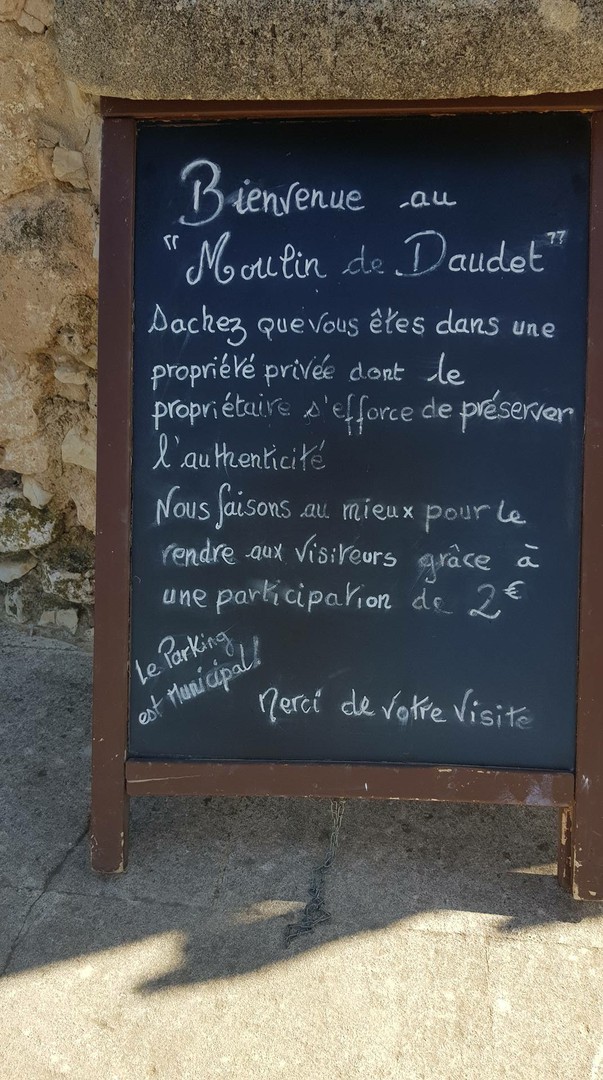 Bienvenue au
"Moulin de Daudet"
Sachez que vous êtes dans une
propriété privée dont le
propriétaire s'efforce de préserver
l'authenticité
Nous faisons au mieux pour le
rendre aux visiteurs grâce à
une participation de 2€
Le Parking
est Municipal!
Merci de votre visite